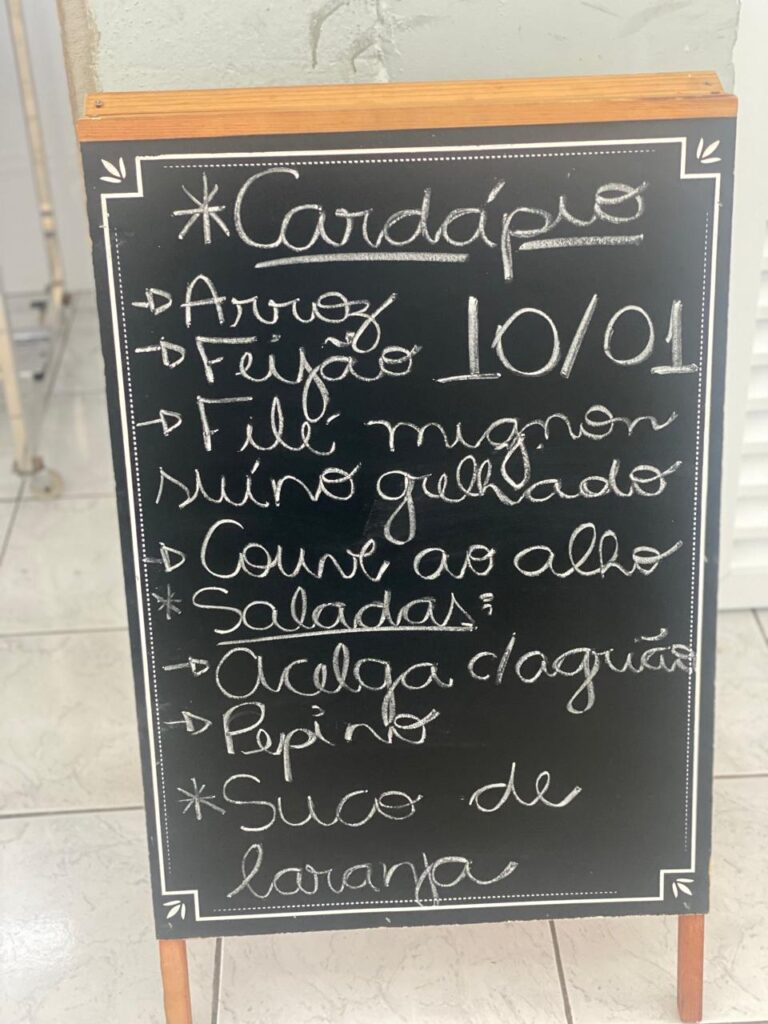 *Cardápio
→ Arroz
→ Feijão 10/01
→ Filé mignon
suíno grelhado
→ Couve ao alho
* Saladas:
→ Acelga c/agrião
→ Pepino
* Suco de
laranja